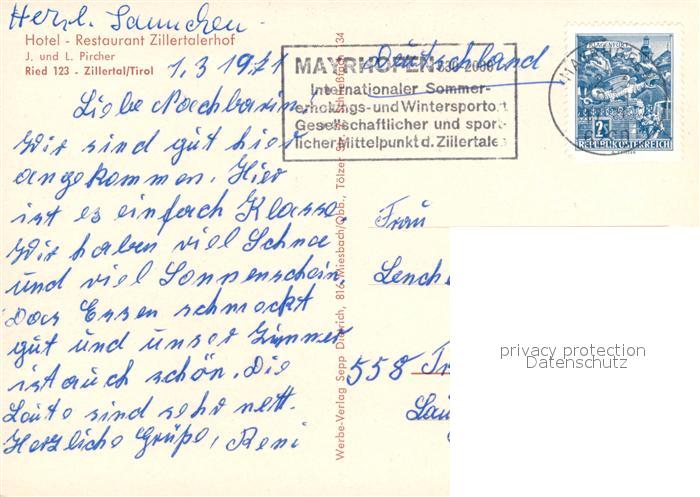 Herzl.
Hotel - Restaurant Zillertalerhof
J. und L. Pircher
Ried 123 - Zillertal/Tirol
1.3 1971
Liebe Nachbarin,
Wir sind gut hier
angekommen. Hier
ist es einfach Klasse.
Wir haben viel Schnee
und viel Sonnenschein.
Das Essen schmeckt
gut und unser Zimmer
ist auch schön. Die
Leute sind sehr nett.
Herzliche Grüße, Reni
Werbe-Verlag Sepp Dietrich, 816 Miesbach/Obb., Tölzer
34
MAYRHOFEN 630-2000
Internationaler Sommer-
erholungs- und Wintersportort
Gesellschaftlicher und sport-
licher Mittelpunkt d. Zillertales
Deutschland
KLAGENFURT
2S
REPUBLIK ÖSTERREICH
Frau
Lench
558 Tr
Lau
privacy protection
Datenschutz